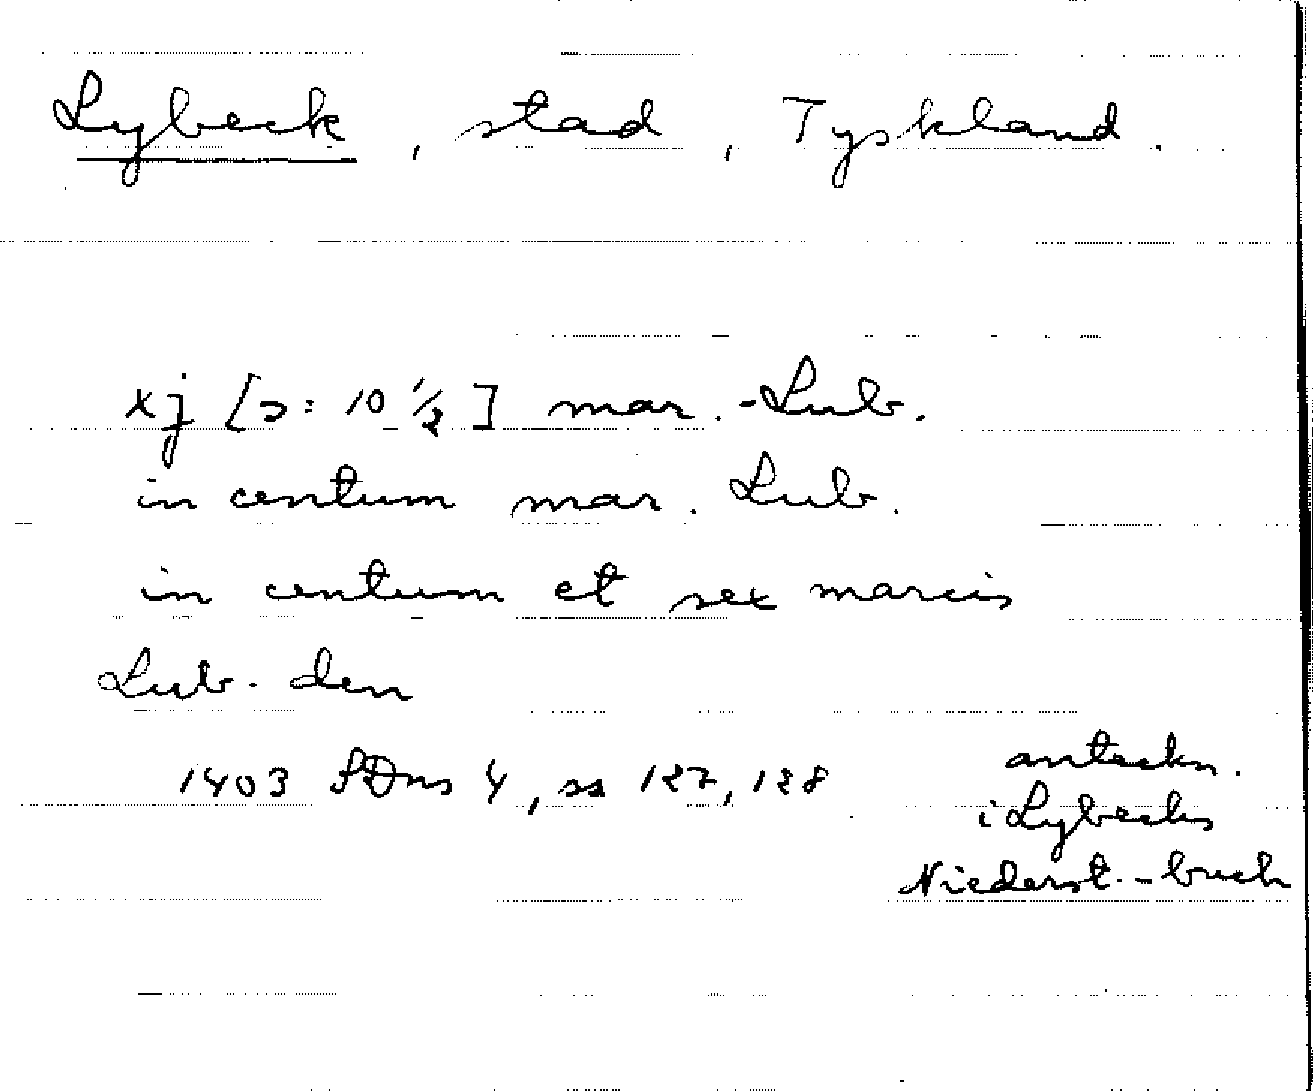 Lybeck, stad, Tyskland.
xj [ɔ: 10 1/2] mar. Lub.
in centum mar. Lub.
in centum et sex marcis
Lub. den
1403 SDns 4, ss 127, 128
anteckn.
i Lybecks
Niederst.-buch